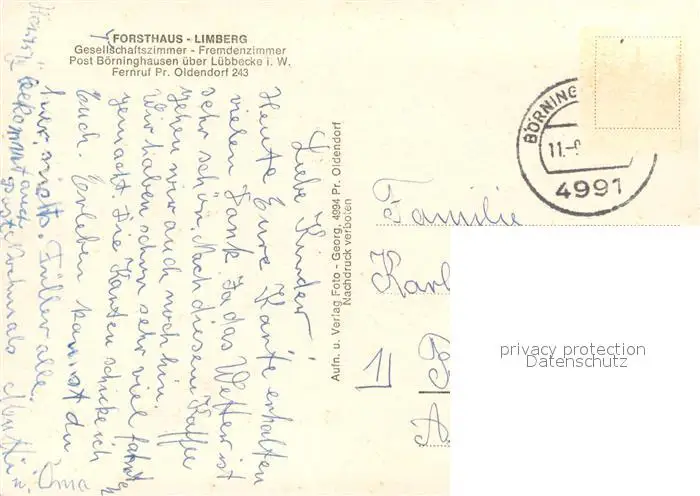 FORSTHAUS - LIMBERG
Gesellschaftszimmer - Fremdenzimmer
Post Börninghausen über Lübbecke i. W.
Fernruf Pr. Oldendorf 243
Liebe Kinder!
Heute Eure Karte erhalten
vielen Dank Ja das Wetter ist
sehr schön. Nach diesem Kaffee
gehen wir auch noch hin.
Wir haben schon sehr viel Fahrt
gemacht. Die Karten schicke ich
Euch. Erleben kannst du
hier nichts. Füller alle.
bekommt auch
Nochmals
Mutti u.
Oma
Aufn. u. Verlag Foto - Georg, 4994 Pr. Oldendorf
Nachdruck verboten
BÖRNING
11.-
4991
Familie
Karl
1)
privacy protection
Datenschutz